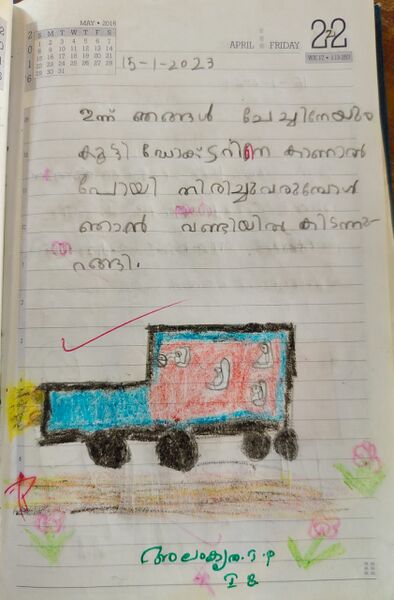 MAY • 2016
S M T W T F S
1 2 3 4 5 6 7
8 9 10 11 12 13 14
15 16 17 18 19 20 21
22 23 24 25 26 27 28
29 30 31
2016
APRIL FRIDAY 22
WK 17 • 113-253
15-1-2023
ഇന്ന് ഞങ്ങൾ ചേച്ചിനേയും
കൂട്ടി ഡോക്ട്ടറിനെ കാണാൻ
പോയി തിരിച്ചുവരുമ്പോൾ
ഞാൻ വണ്ടിയിൽ കിടന്നു
റങ്ങി.
അലംകൃത. റ്റി. പി
I B